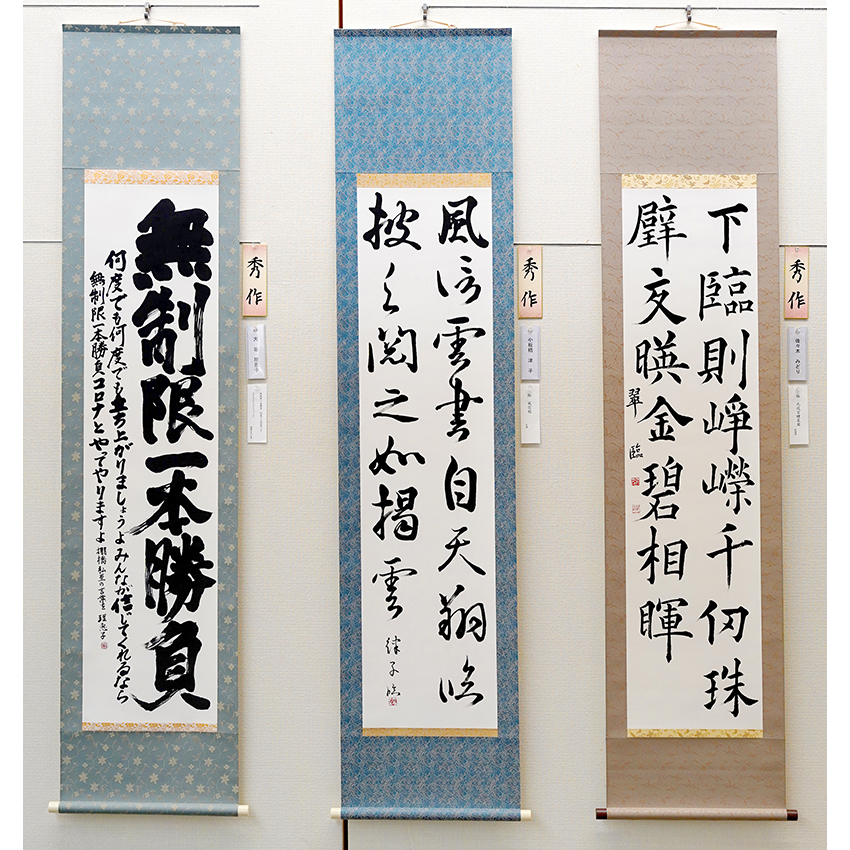 無制限一本勝負
何度でも何度でも立ち上がりましょうよみんなが信じてくれるなら
無制限一本勝負コロナとやってやりますよ 棚橋弘至の言葉を
秀作
風信雲書自天翔臨
披之閲之如掲雲
子臨
秀作
下臨則崢嶸千仞珠
壁交暎金碧相暉
翠臨
秀作
佐々木 みどり